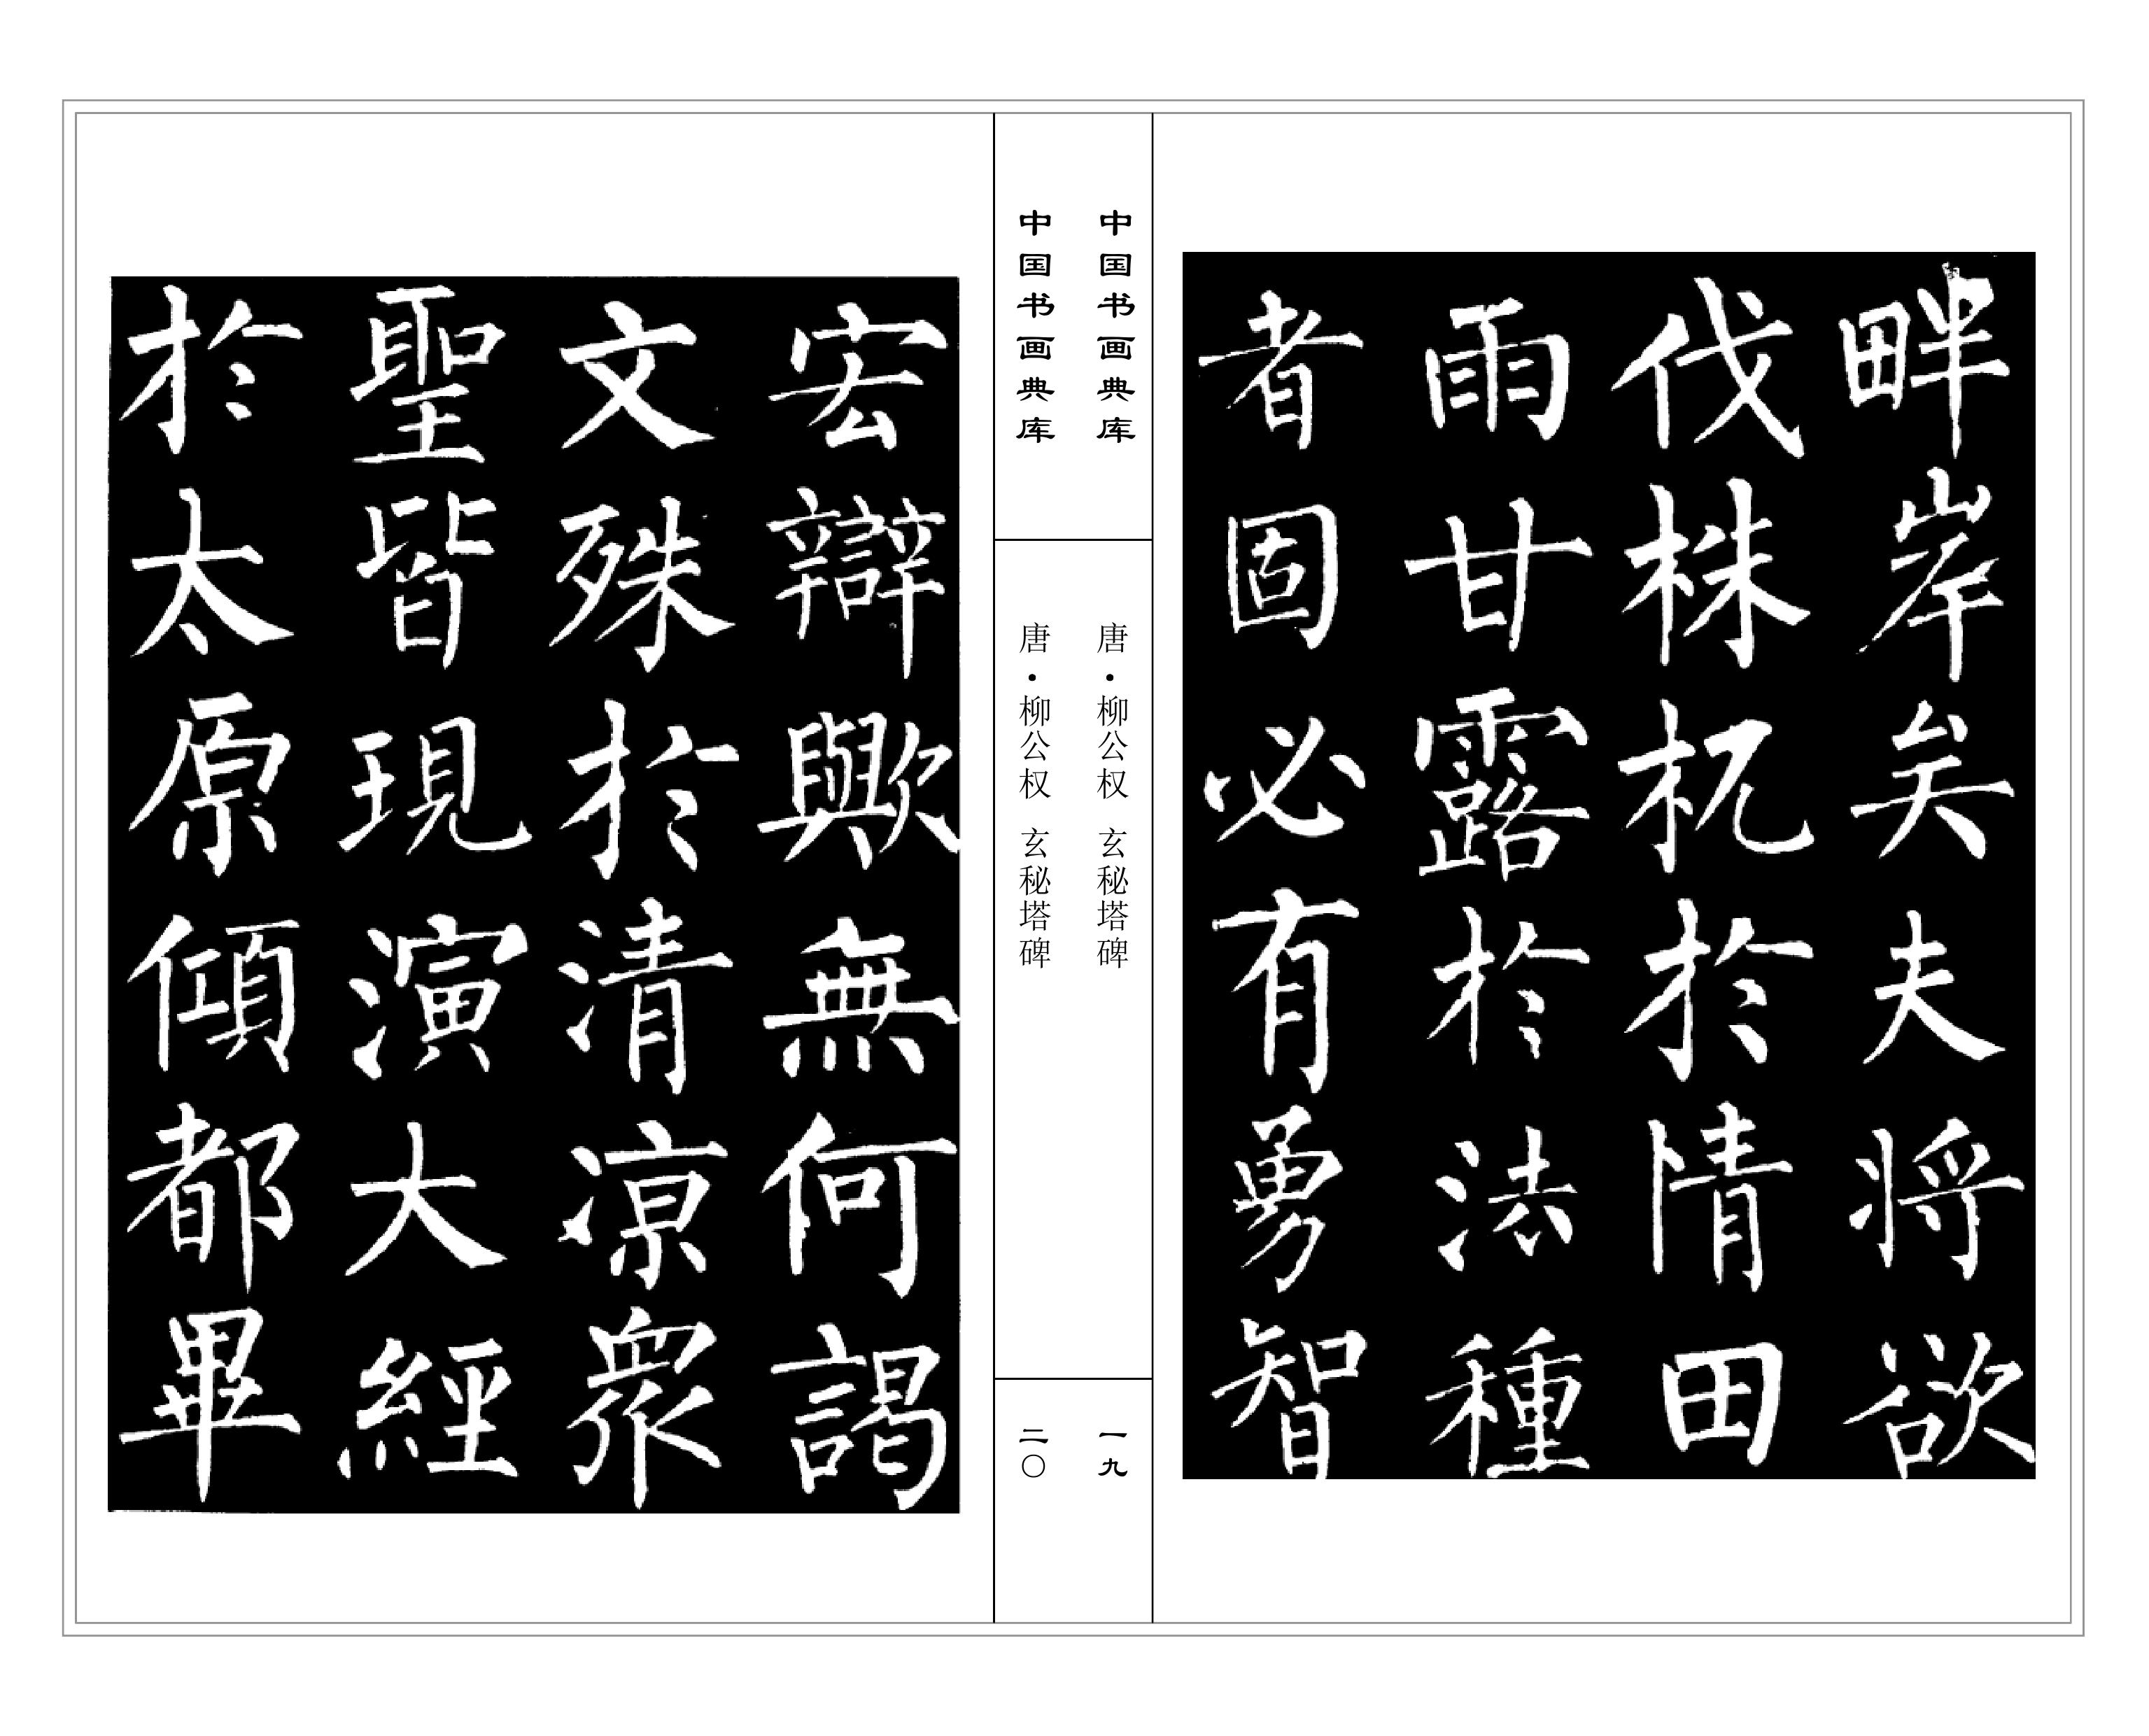 畔岸矣夫将欲
伐株杌於情田
雨甘露於法種
者固必有勇智
中国书画典库
唐·柳公权 玄秘塔碑
一九
中国书画典库
唐·柳公权 玄秘塔碑
二〇
宏辯歟無何謁
文殊於清凉衆
聖皆現演大經
於太原傾都畢